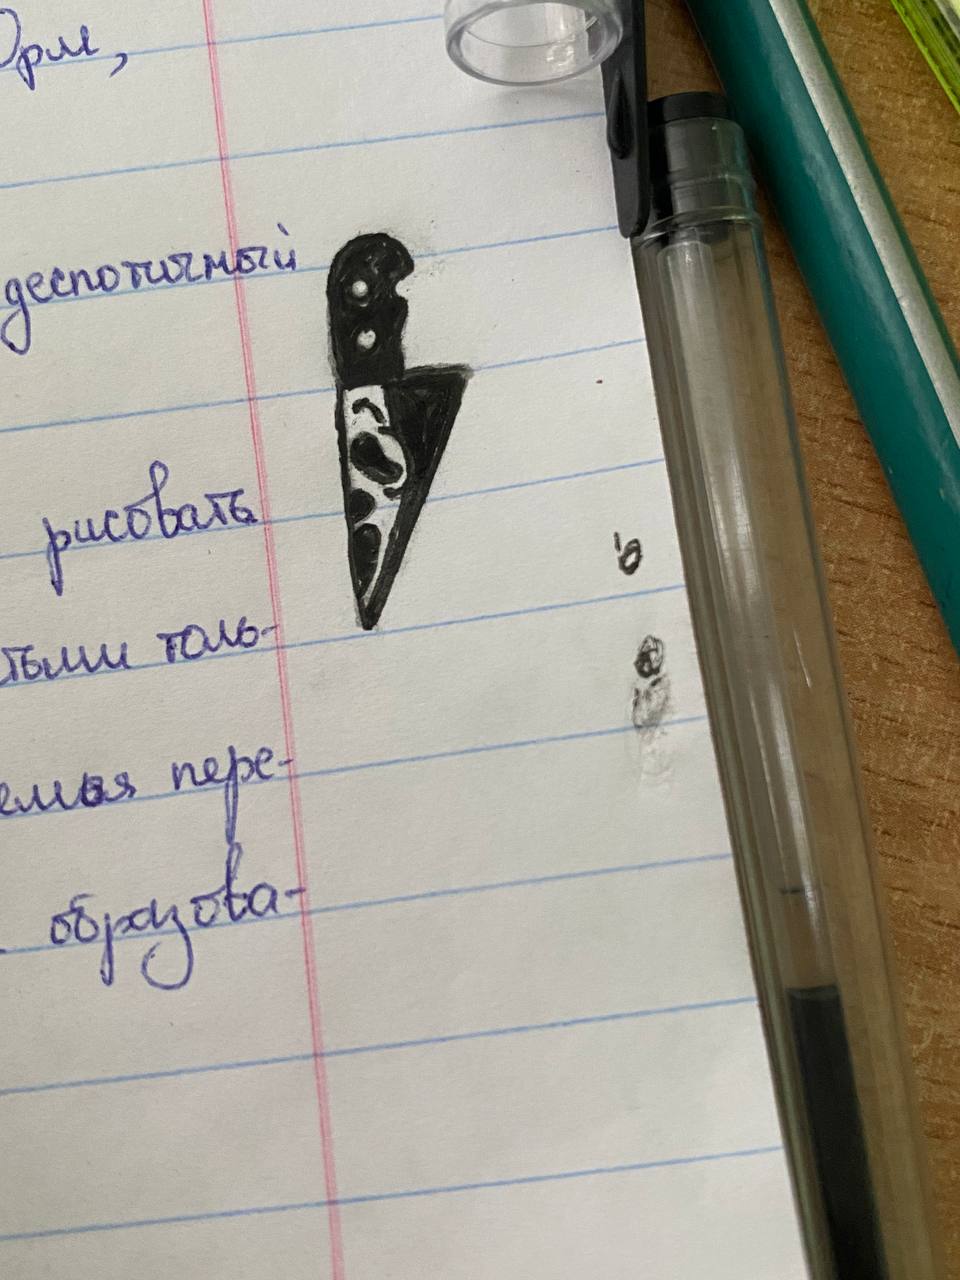 Орм,
деспотичный
рисовать
тыми толь-
емья пере-
образова-